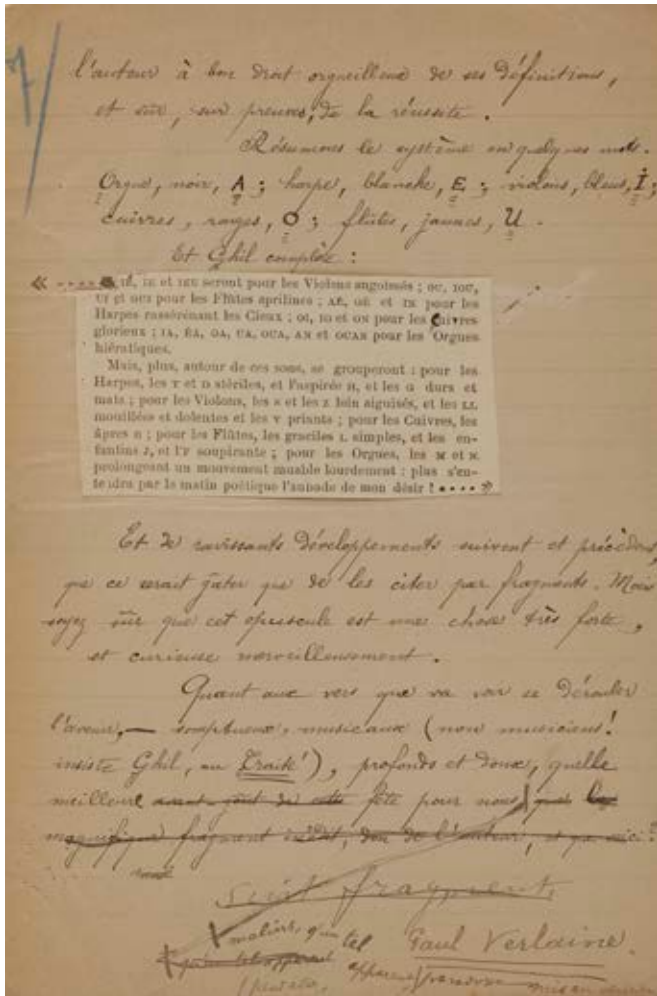 7/
l'auteur à bon droit orgueilleux de ses définitions,
et sûr, sur preuves, de la réussite.
Résumons le système en quelques mots.
Orgue, noir, A ; harpe, blanche, E ; violons, bleus, I ;
cuivres, rouges, O ; flûtes, jaunes, U.
Et Ghil complète :
« .... IÉ, IE et IEU seront pour les Violons angoissés ; OU, IOU,
UI et OUI pour les Flûtes aprilines ; AE, OE et IN pour les
Harpes rassérénant les Cieux ; OI, IO et ON pour les Cuivres
glorieux ; IA, ÉA, OA, UA, OUA, AN et OUAN pour les Orgues
hiératiques.
Mais, plus, autour de ces sons, se grouperont : pour les
Harpes, les T et D stériles, et l'aspirée H, et les G durs et
mats ; pour les Violons, les S et les Z loin aiguisés, et les LL
mouillées et dolentes et les V priants ; pour les Cuivres, les
âpres R ; pour les Flûtes, les graciles L simples, et les en-
fantins J, et l'F soupirante ; pour les Orgues, les M et N
prolongeant un mouvement muable lourdement : plus s'en-
tendra par le matin poétique l'aubade de mon désir ! .... »
Et de ravissants développements suivent et précèdent,
que ce serait gâter que de les citer par fragments. Mais
soyez sûr que cet opuscule est une chose très forte,
et curieuse merveilleusement.
Quant aux vers que va voir se dérouler
l'avenir, — somptueux, musicaux (non musiciens !
insiste Ghil, au Traité), profonds et doux, quelle
meilleure avant-goût de cette fête pour nous, que le
magnifique fragment inédit, don de l'auteur, et que voici ?
Suit fragment
malins, qu'un tel
Paul Verlaine.